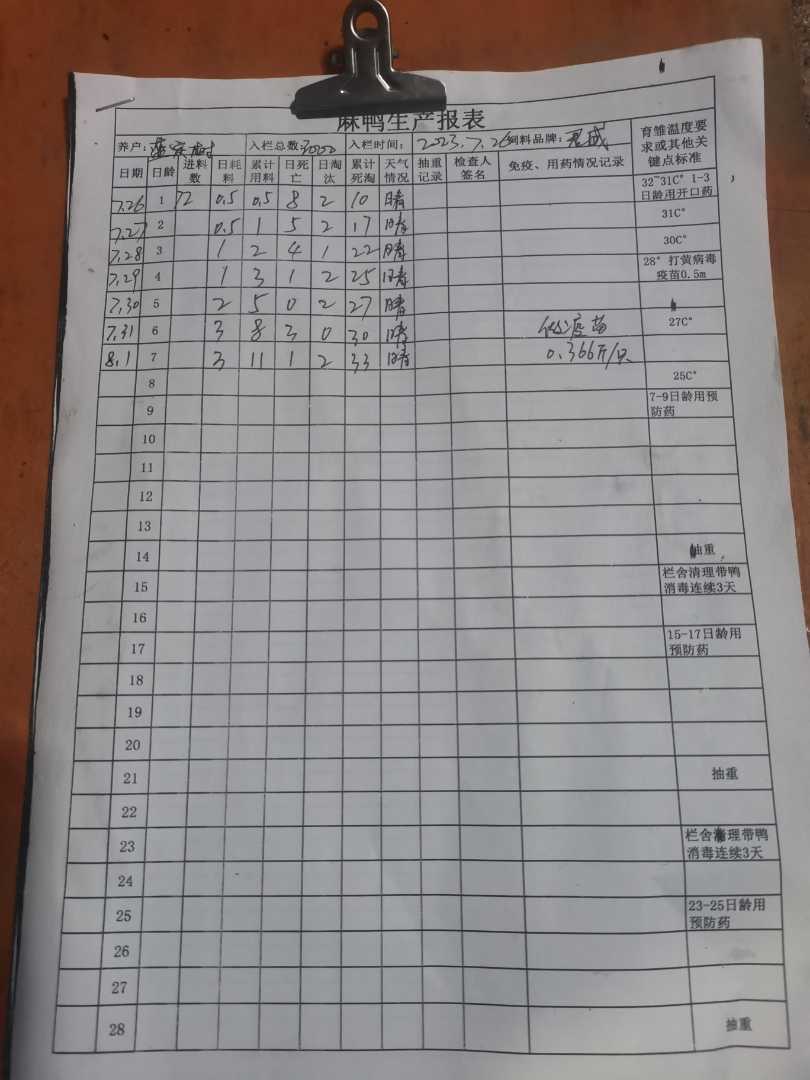 麻鸭生产报表
养户: 入栏总数: 入栏时间: 2023.7.26 饲料品牌: 育雏温度要求或其他关键点标准
日期 日龄 进料数 日耗料 累计用料 日死亡 日淘汰 累计死淘 天气情况 抽重记录 检查人签名 免疫、用药情况记录
7.26 1 72 0.5 0.5 8 2 10 晴 32~31C° 1-3日龄用开口药
7.27 2 0.5 1 5 2 17 晴 31C°
7.28 3 1 2 4 1 22 晴 30C°
7.29 4 1 3 1 2 25 晴 28° 打黄病毒疫苗0.5m
7.30 5 2 5 0 2 27 晴
7.31 6 3 8 3 0 30 晴 疫苗 27C°
8.1 7 3 11 1 2 33 晴 0.366斤/只
8 25C°
9 7-9日龄用预防药
10
11
12
13
14 抽重
15 栏舍清理带鸭消毒连续3天
16
17 15-17日龄用预防药
18
19
20
21 抽重
22
23 栏舍清理带鸭消毒连续3天
24
25 23-25日龄用预防药
26
27
28 抽重